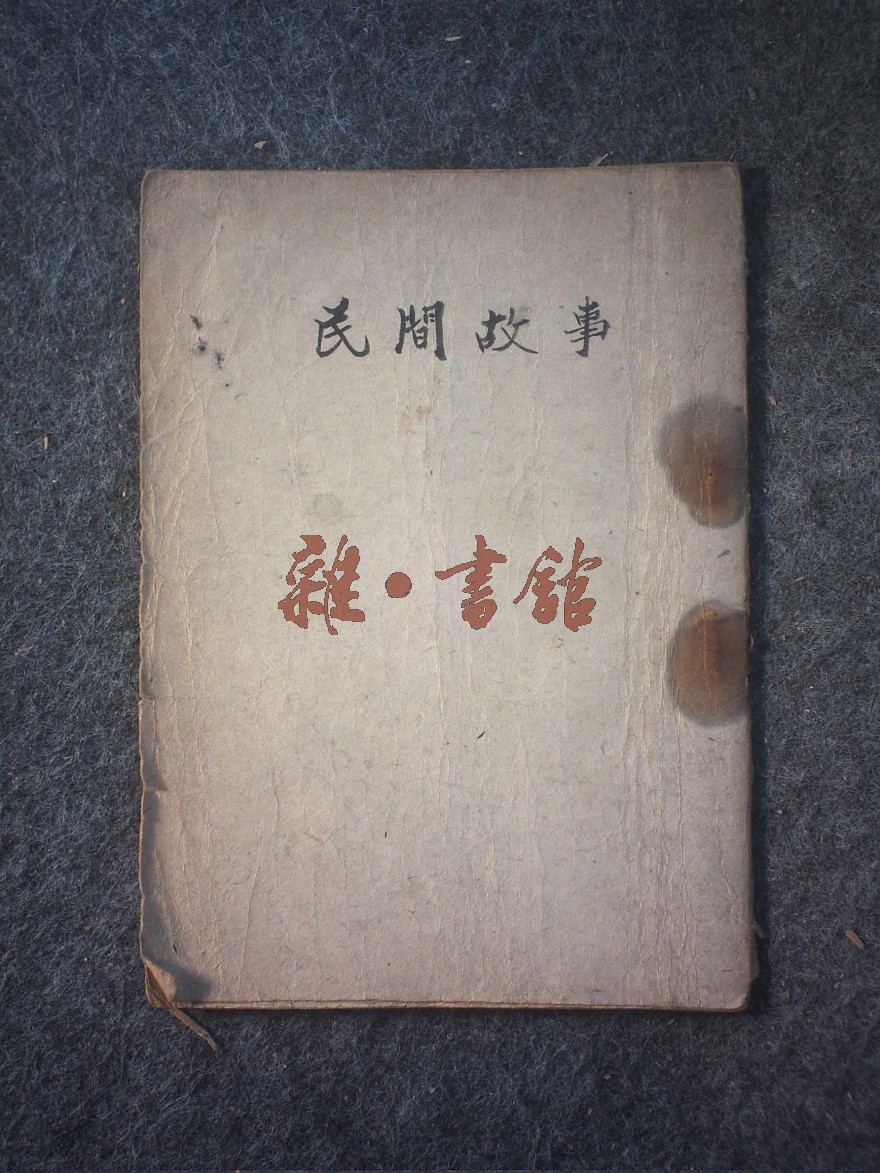 民間故事
雜·書舘